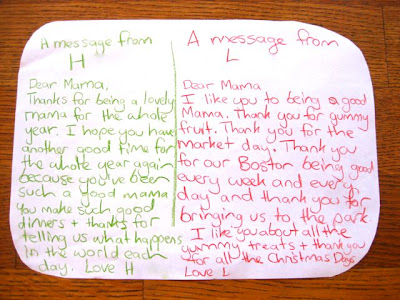 A message from
H
Dear Mama,
Thanks for being a lovely
mama for the whole
year. I hope you have
another good time for
the whole year again
because you've been
such a good mama
You make such good
dinners + thanks for
telling us what happens
in the world each
day. Love H
A message from
L
Dear Mama
I like you to being a good
Mama. Thank you for gummy
fruit. Thank you for the
market day. Thank you
for our Boston being good
every week and every
day and thank you for
bringing us to the park
I like you about all the
yummy treats + thank you
for all the Christmas Days
Love L